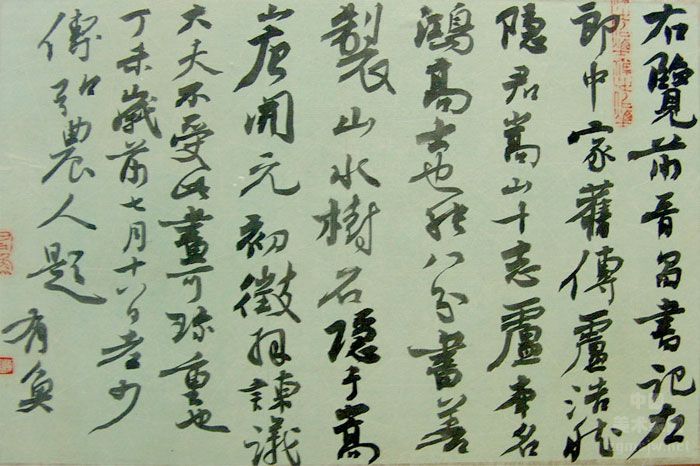 右覽前晉昌書記左
郎中家舊傳盧浩然
隱君嵩山十志盧本名
鴻高士也能八分書善
製山水樹石隱于嵩
山唐開元初徵拜諫議
大夫不受此畫可珍重也
丁未歲前七月十八日老少
傅弘農人題
有奐